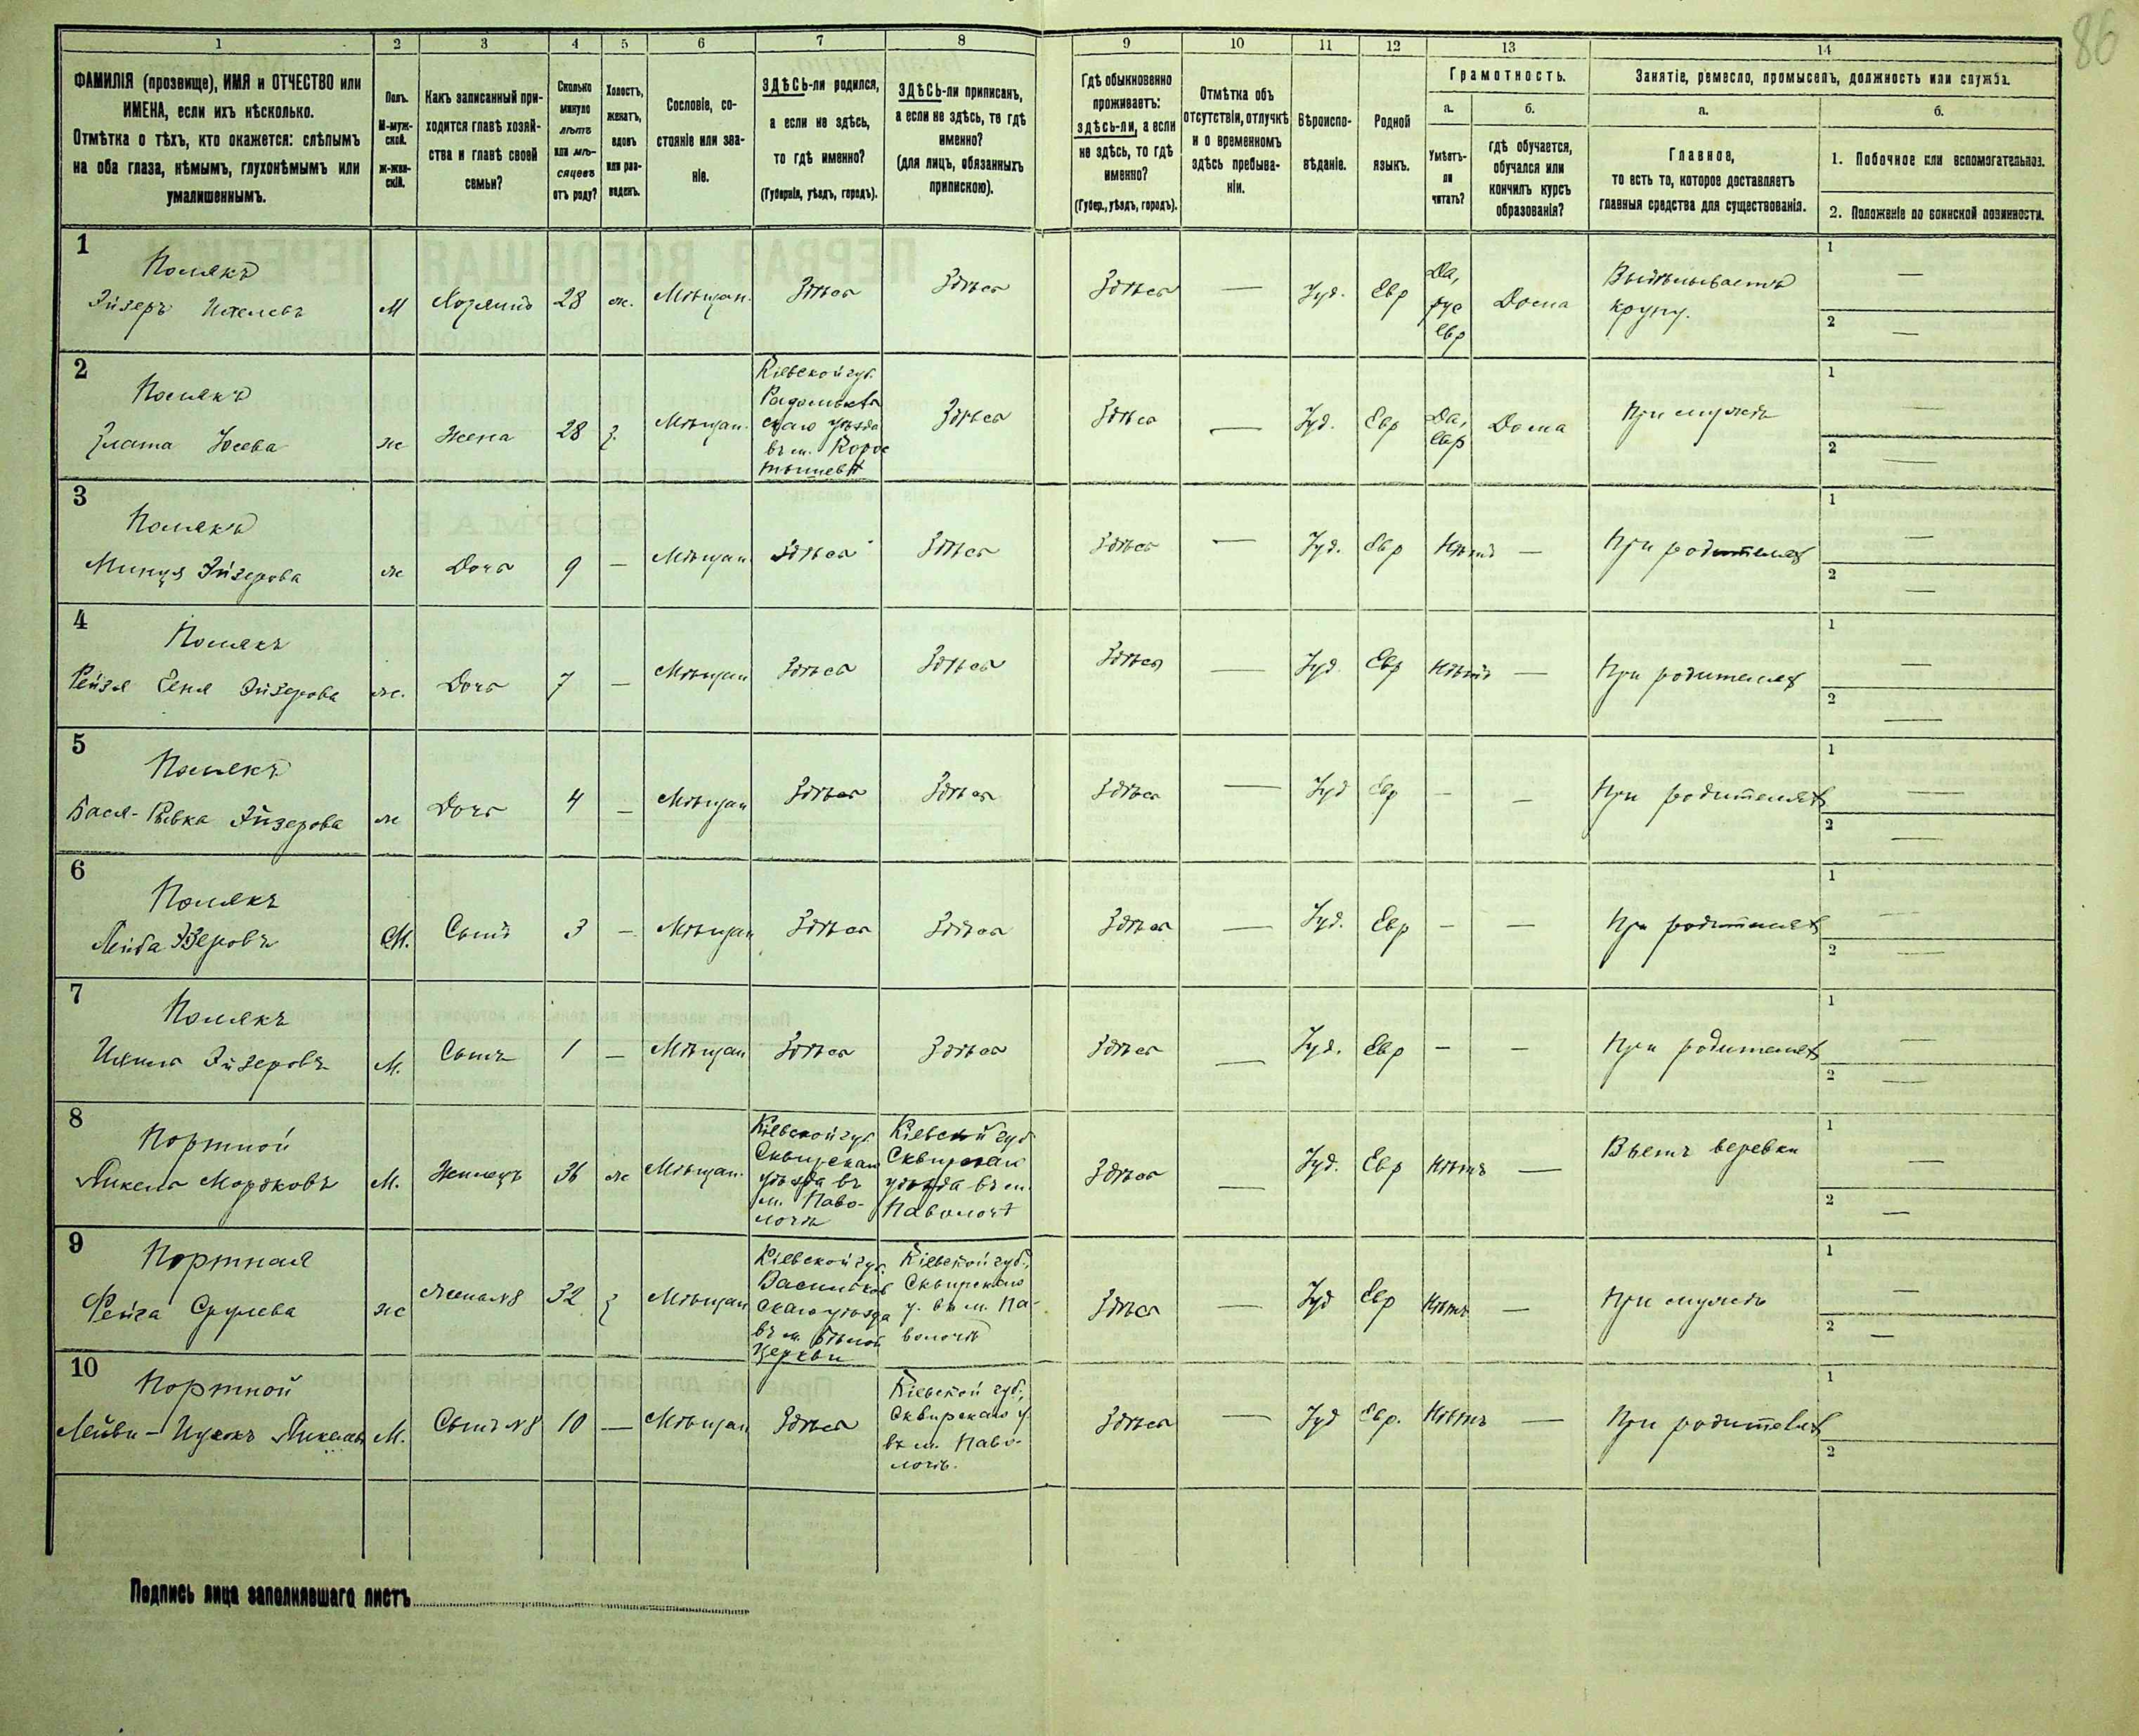 86
1 2 3 4 5 6 7 8 9 10 11 12 13 14
ФАМИЛІЯ (прозвище), ИМЯ и ОТЧЕСТВО или
ИМЕНА, если ихъ нѣсколько.
Отмѣтка о тѣхъ, кто окажется: слѣпымъ
на оба глаза, нѣмымъ, глухонѣмымъ или
умалишеннымъ.
Полъ.
М-муж-
ской.
ж-жен-
скій.
Какъ записанный при-
ходится главѣ хозяй-
ства и главѣ своей
семьи?
Сколько
минуло
лѣтъ
или мѣ-
сяцевъ
отъ роду?
Холостъ,
женатъ,
вдовъ
или раз-
веденъ.
Сословіе, со-
стояніе или зва-
ніе.
ЗДѢСЬ-ли родился,
а если не здѣсь,
то гдѣ именно?
(Губернія, уѣздъ, городъ).
ЗДѢСЬ-ли приписанъ,
а если не здѣсь, то гдѣ
именно?
(для лицъ, обязанныхъ
припискою).
Гдѣ обыкновенно
проживаетъ:
здѣсь-ли, а если
не здѣсь, то гдѣ
именно?
(Губер., уѣздъ, городъ).
Отмѣтка объ
отсутствіи, отлучкѣ
и о временномъ
здѣсь пребыва-
ніи.
Вѣроиспо-
вѣданіе.
Родной
языкъ.
Грамотность.
а.
Умѣетъ-
ли
читать?
б.
гдѣ обучается,
обучался или
кончилъ курсъ
образованія?
Занятіе, ремесло, промыселъ, должность или служба.
а.
Главное,
то есть то, которое доставляетъ
главныя средства для существованія.
б.
1. Побочное или вспомогательное.
2. Положеніе по воинской повинности.
1
Полякъ
Эйзеръ Ихелевъ
М
Хозяинъ
28
ж.
Мѣщан.
Здѣсь
Здѣсь
Здѣсь
—
Іуд.
Евр
Да,
рус
Евр
Дома
Выдѣлываетъ
крупу.
1 —
2 —
2
Полякъ
Злата Юсева
ж
Жена
28
З.
Мѣщан.
Кіевской губ.
Радомысль
скаго уѣзда
въ м. Коро
стышевѣ
Здѣсь
Здѣсь
—
Іуд.
Евр
Да,
Евр
Дома
При мужѣ
1 —
2 —
3
Полякъ
Минця Эйзерова
ж
Дочь
9
—
Мѣщан
Здѣсь
Здѣсь
Здѣсь
—
Іуд.
Евр
Нѣтъ
—
При родителях
1 —
2 —
4
Полякъ
Рейзя Геня Эйзерова
ж.
Дочь
7
—
Мѣщан
Здѣсь
Здѣсь
Здѣсь
—
Іуд.
Евр
Нѣтъ
—
При родителях
1 —
2 —
5
Полякъ
Бася-Ривка Эйзерова
ж
Дочь
4
—
Мѣщан
Здѣсь
Здѣсь
Здѣсь
—
Іуд
Евр
—
—
При родителях
1 —
2 —
6
Полякъ
Лейба Эзеровъ
М.
Сынъ
3
—
Мѣщан
Здѣсь
Здѣсь
Здѣсь
—
Іуд.
Евр
—
—
При родителях
1 —
2 —
7
Полякъ
Ихиль Эйзеровъ
М.
Сынъ
1
—
Мѣщан
Здѣсь
Здѣсь
Здѣсь
—
Іуд.
Евр
—
—
При родителях
1 —
2 —
8
Портной
Янкель Мордковъ
М.
Жилецъ
36
ж
Мѣщан.
Кіевской губ.
Сквирскаго
уѣзда въ
м. Паво-
лочѣ
Кіевской губ
Сквирскаго
уѣзда въ м.
Паволочѣ
Здѣсь
—
Іуд.
Евр
Нѣтъ
—
Вьетъ веревки
1 —
2 —
9
Портная
Фейга Срулева
ж
Жена №8
32
З
Мѣщан
Кіевской губ
Васильков
скаго уѣзда
въ м. Бѣлой
Церкви
Кіевской губ.,
Сквирскаго
у. въ м. Па-
волочѣ
Здѣсь
—
Іуд
Евр
Нѣтъ
—
При мужѣ
1 —
2 —
10
Портной
Лейви-Ицхокъ Янкелев
М.
Сынъ №8
10
—
Мѣщан
Здѣсь
Кіевской губ.,
Сквирскаго у.
въ м. Паво-
лочѣ.
Здѣсь
—
Іуд
Евр.
Нѣтъ
—
При родителях
1
2
Подпись лица заполнявшаго листъ